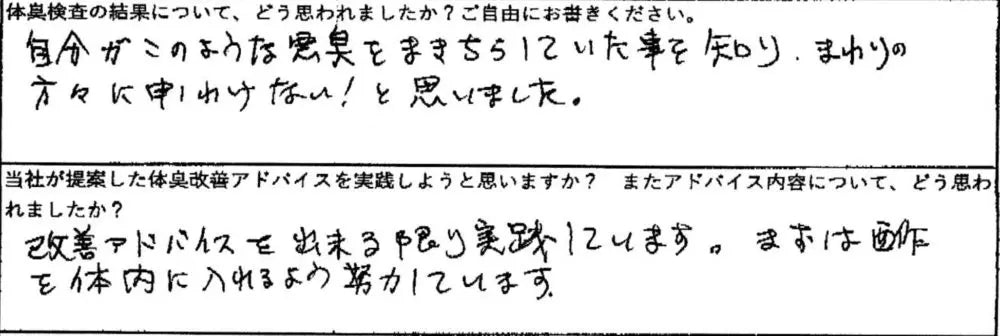 体臭検査の結果について、どう思われましたか？ご自由にお書きください。
自分がこのような悪臭をまきちらしていた事を知り、まわりの
方々に申しわけない！と思いました。
当社が提案した体臭改善アドバイスを実践しようと思いますか？　またアドバイス内容について、どう思わ
れましたか？
改善アドバイスを出来る限り実践しています。まずは酢
を体内に入れるよう努力しています。